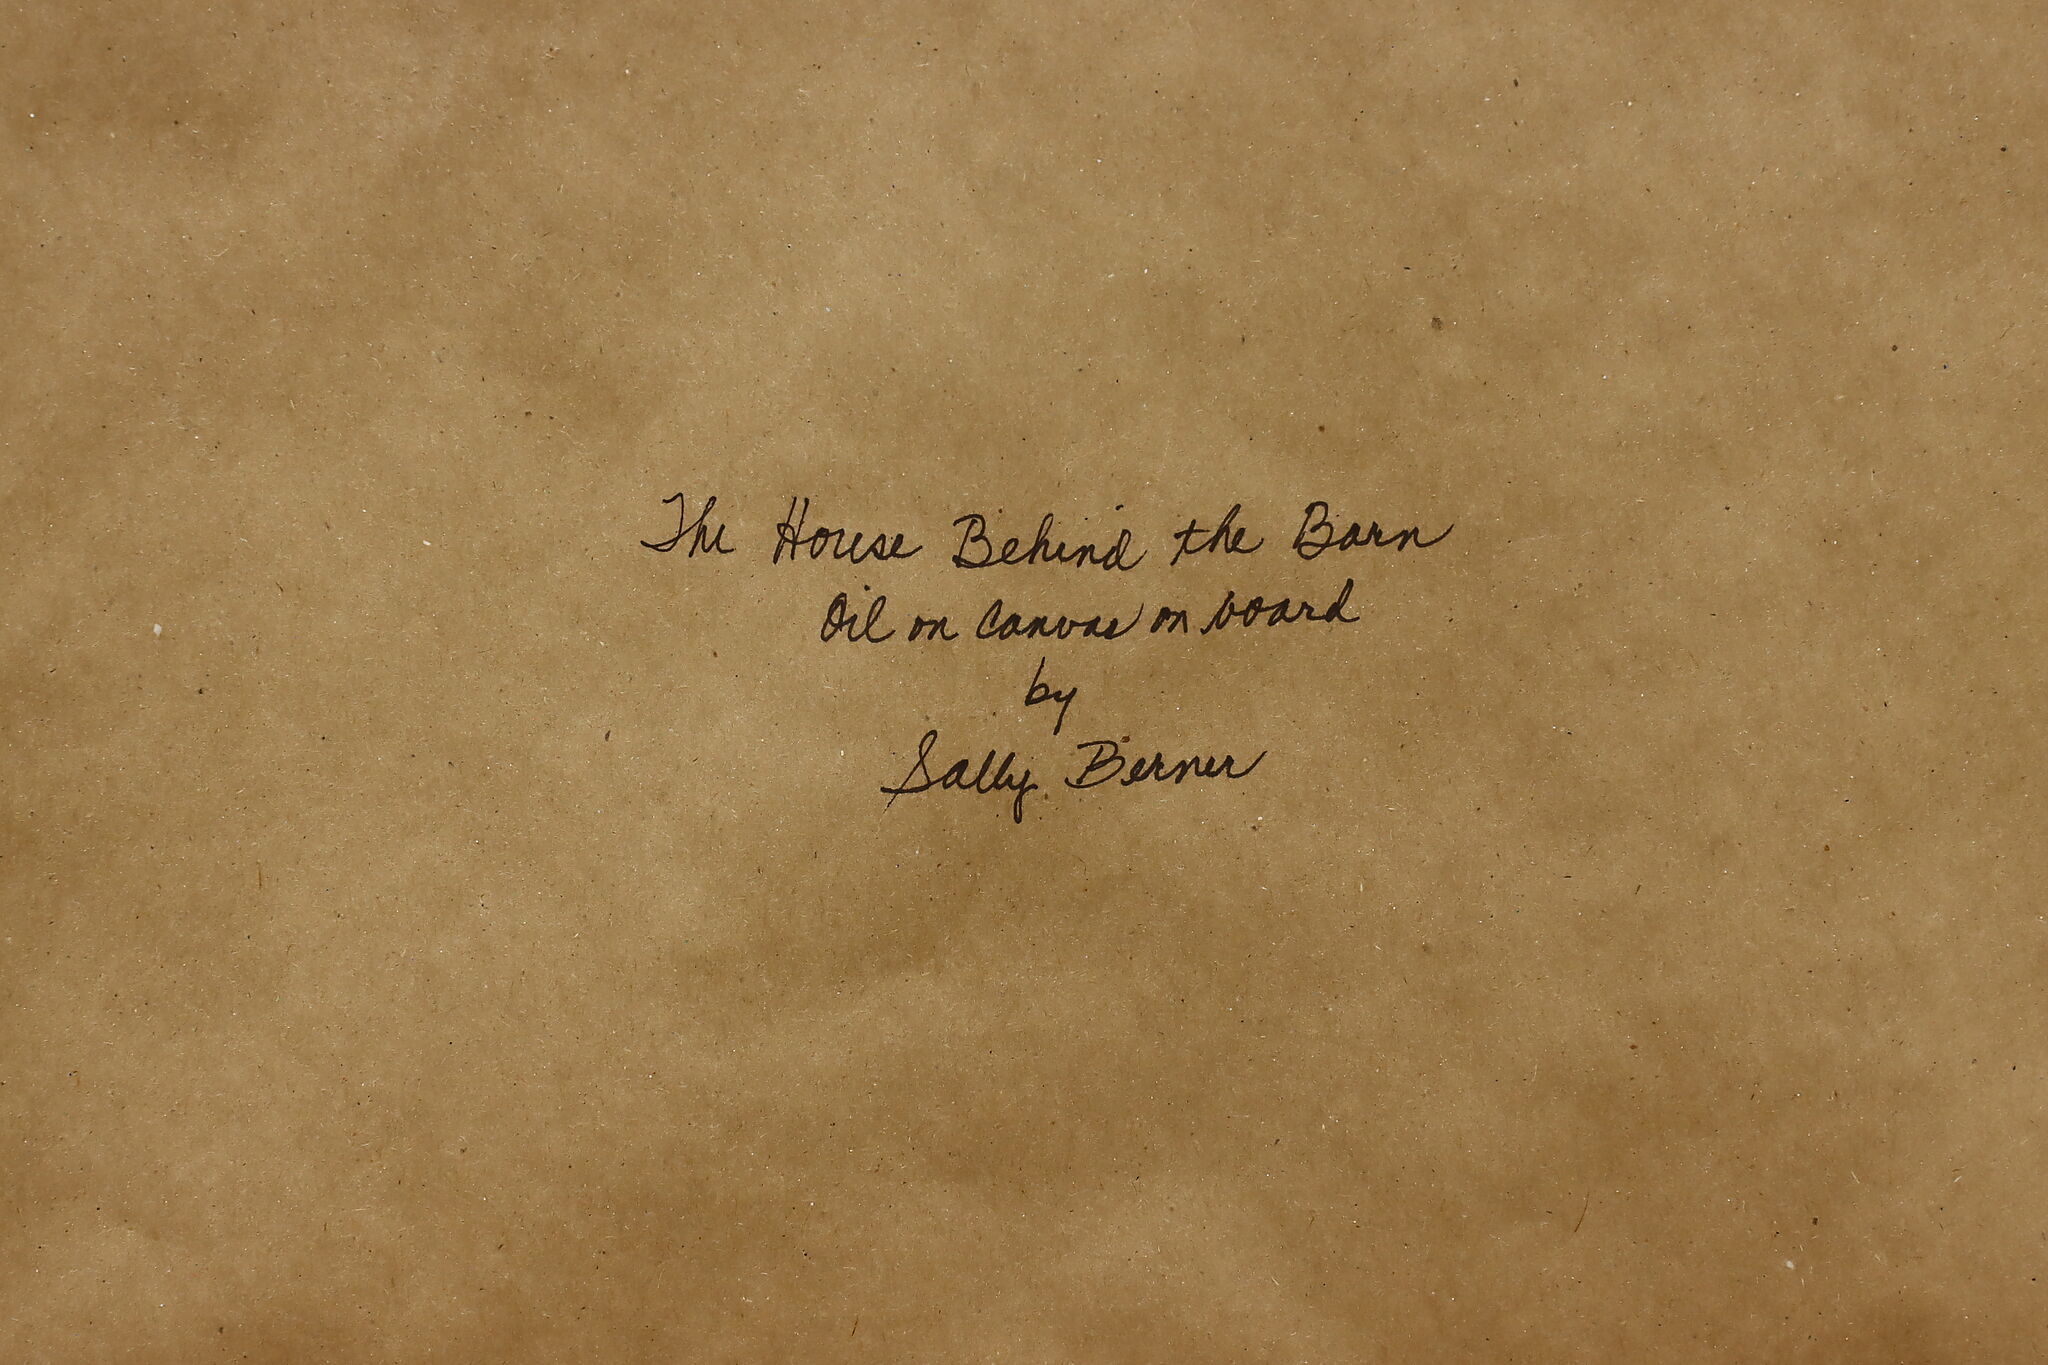 The House Behind the Barn
Oil on Canvas on board
by
Sally Berner